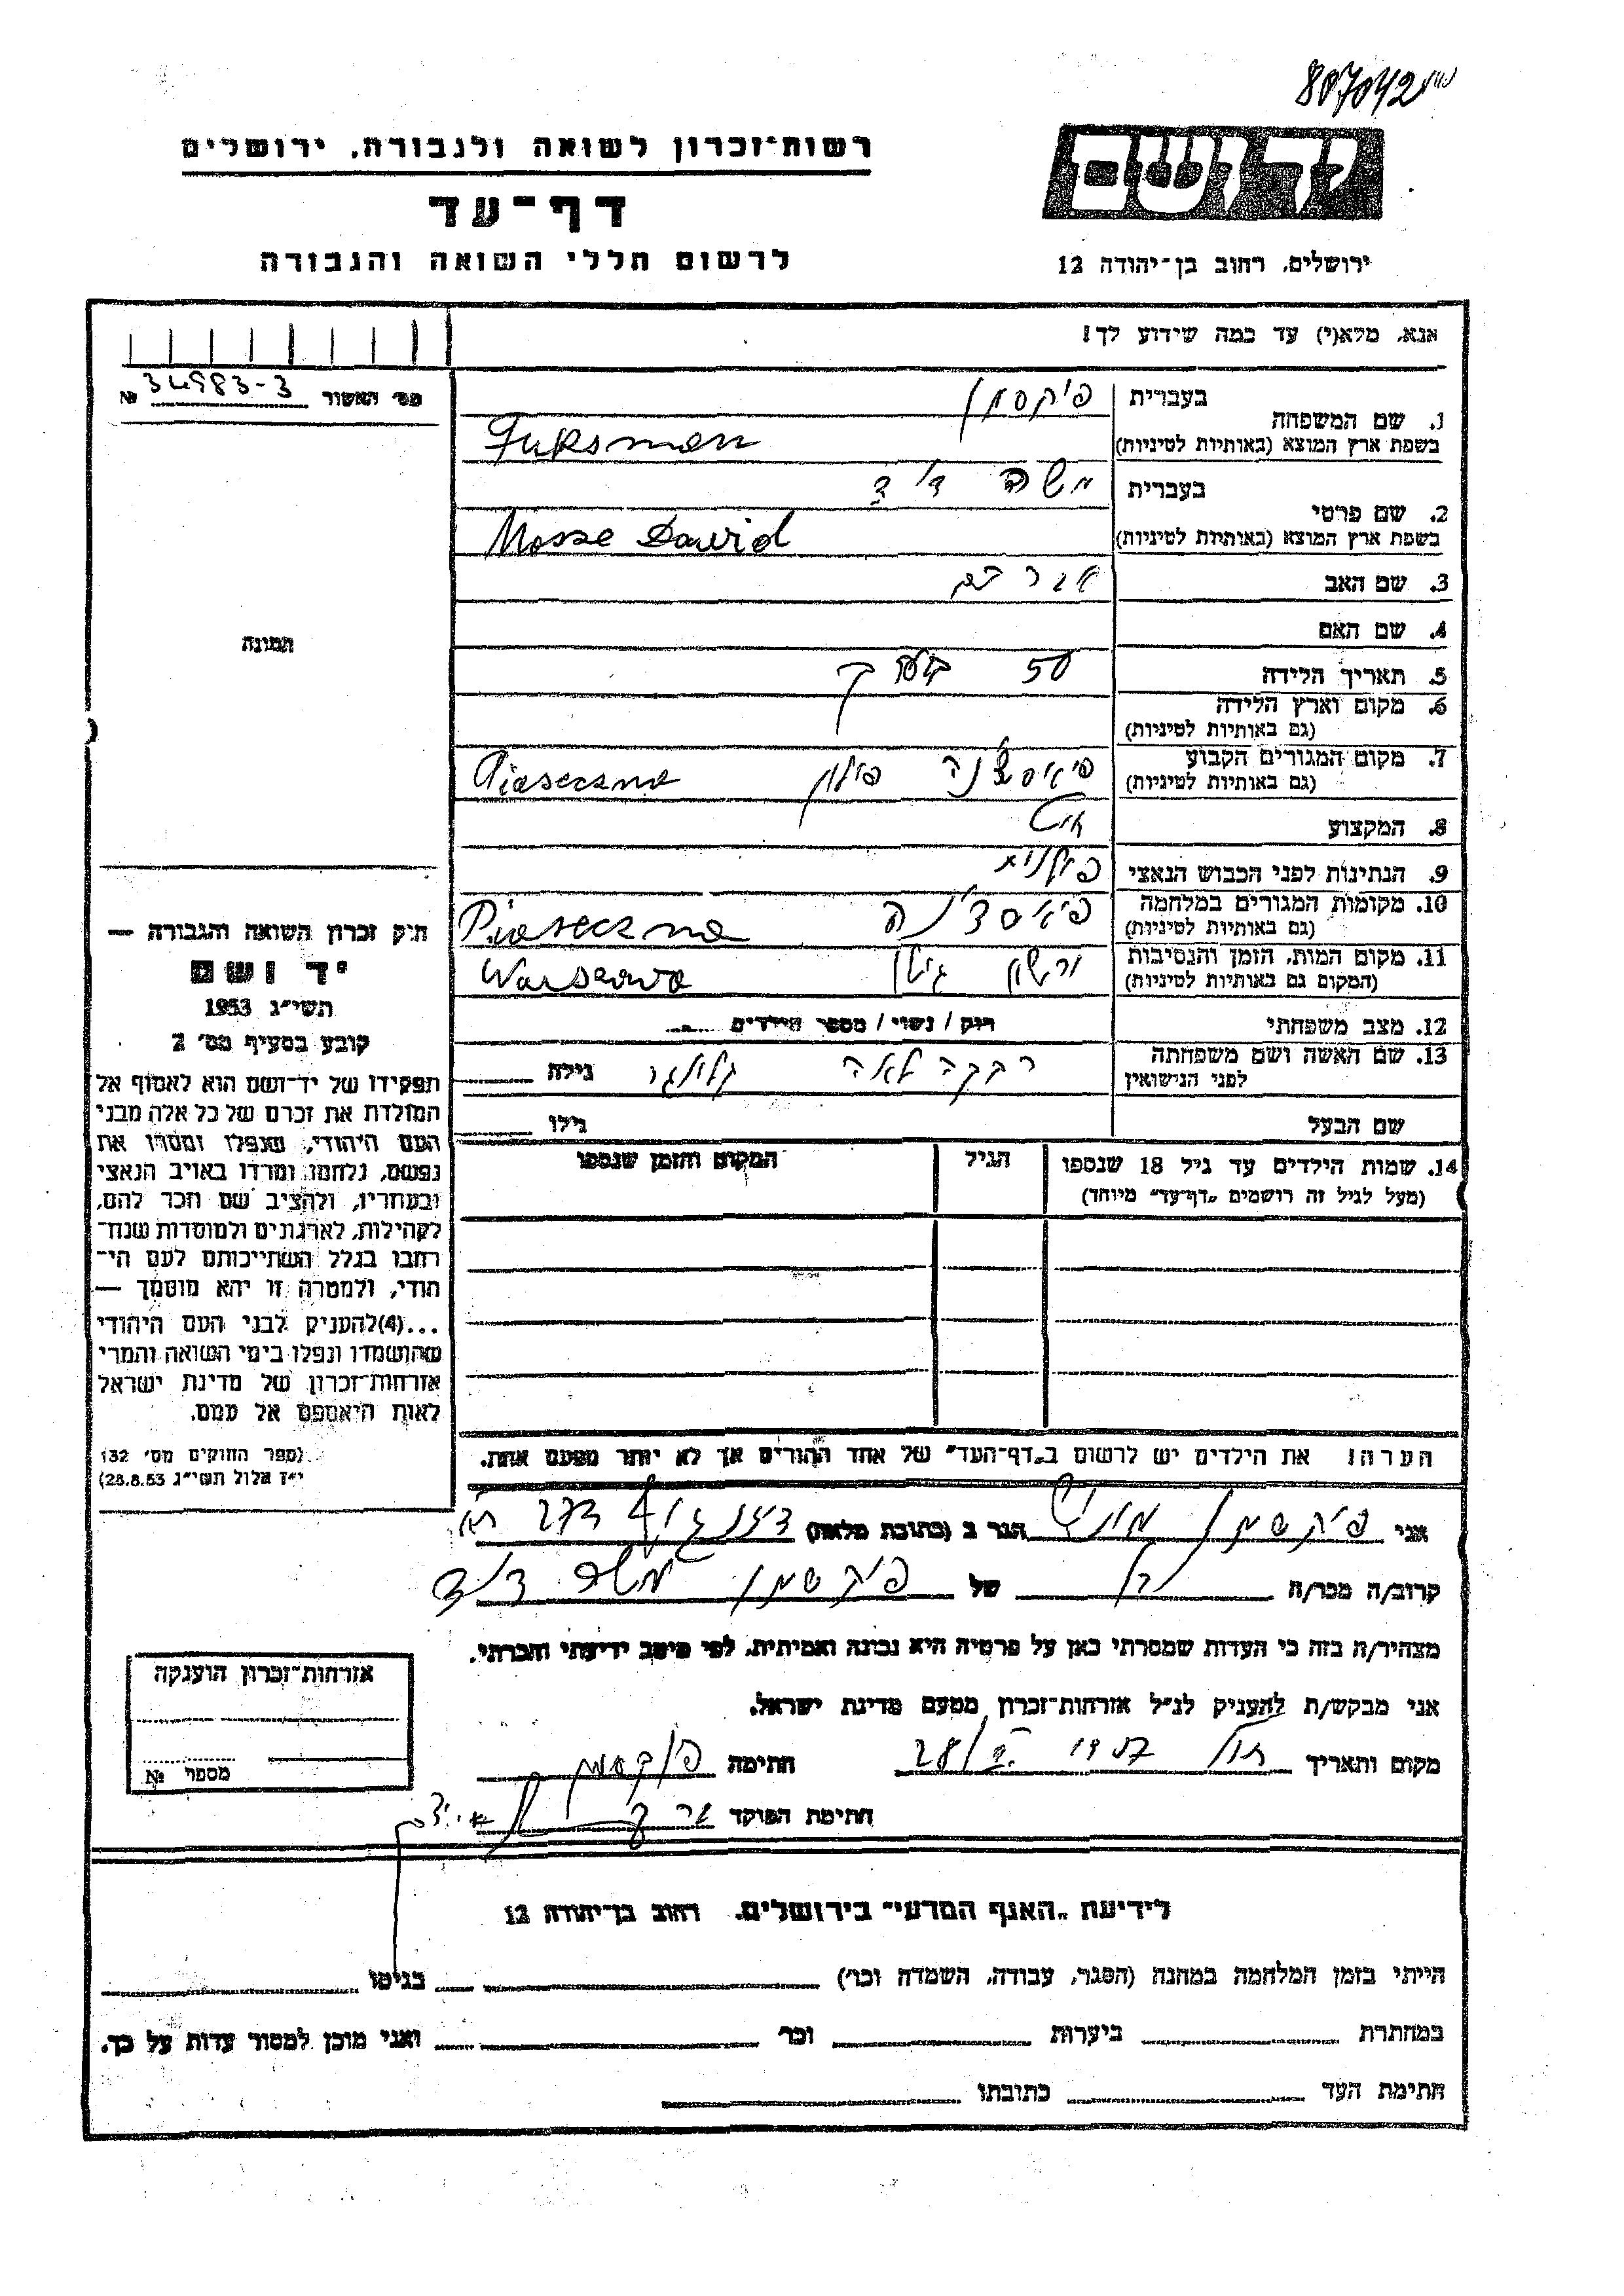 807042
רשות־זכרון לשואה ולגבורה, ירושלים
דף־עד
לרשום חללי השואה והגבורה
יד ושם
ירושלים, רחוב בן־יהודה 12
אנא, מלא(י) עד כמה שידוע לך!
מס׳ האשור 34983-3 №
1. שם המשפחה
בעברית פיקסמן
בשפת ארץ המוצא (באותיות לטיניות) Fuksman
2. שם פרטי
בעברית משה דוד
בשפת ארץ המוצא (באותיות לטיניות) Mosze Dawid
3. שם האב אברהם
4. שם האם
5. תאריך הלידה 50 בערך
6. מקום וארץ הלידה
(גם באותיות לטיניות)
7. מקום המגורים הקבוע פיאסצ'נה פולין Piaseczna
(גם באותיות לטיניות)
8. המקצוע
9. הנתינות לפני הכבוש הנאצי פולנית
10. מקומות המגורים במלחמה פיאסצ'נה Piaseczna
(גם באותיות לטיניות)
11. מקום המות, הזמן והנסיבות Warszawa
(המקום גם באותיות לטיניות)
12. מצב משפחתי רווק / נשוי / מספר הילדים
13. שם האשה ושם משפחתה רבקה לאה גילה
לפני הנישואין
שם הבעל גילו
14. שמות הילדים עד גיל 18 שנספו הגיל המקום והזמן שנספו
(מעל לגיל זה רושמים „דף־עד" מיוחד)
הערה! את הילדים יש לרשום ב„דף־העד" של אחד ההורים אך לא יותר מפעם אחת.
תמונה
חוק זכרון השואה והגבורה —
יד ושם
תשי״ג 1953
קובע בסעיף מס׳ 2
תפקידו של יד־ושם הוא לאסוף אל
המולדת את זכרם של כל אלה מבני
העם היהודי, שנפלו ומסרו את
נפשם, נלחמו ומרדו באויב הנאצי
ובעוזריו, ולהציב שם וזכר להם,
לקהילות, לארגונים ולמוסדות שנח־
רבו בגלל השתייכותם לעם הי־
הודי, ולמטרה זו יהא מוסמך —
...(4)להעניק לבני העם היהודי
שהושמדו ונפלו בימי השואה והמרי
אזרחות־זכרון של מדינת ישראל
לאות היאספם אל עמם.
(ספר החוקים מס׳ 132
י״ז אלול תשי״ג 28.8.53)
אני פוקסמן הגר ב (כתובת מלאה)
קרוב/ה מכר/ה של פוקסמן משה דוד
מצהיר/ה בזה כי העדות שמסרתי כאן על פרטיה היא נכונה ואמיתית, לפי מיטב ידיעתי והכרתי.
אני מבקש/ת להעניק לנ״ל אזרחות־זכרון מטעם מדינת ישראל.
מקום ותאריך חתימה פוקסמן
חתימת הפוקד
אזרחות־זכרון הוענקה
מספר №
לידיעת „האגף המדעי" בירושלים, רחוב בן־יהודה 12
הייתי בזמן המלחמה במחנה (הסגר, עבודה, השמדה וכו׳) בגיטו
במחתרת ביערות וכו׳ ואני מוכן למסור עדות על כך.
חתימת העד כתובתו